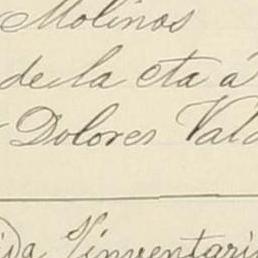 Molinos
de la cta á
Dolores Vald
ida é inventari